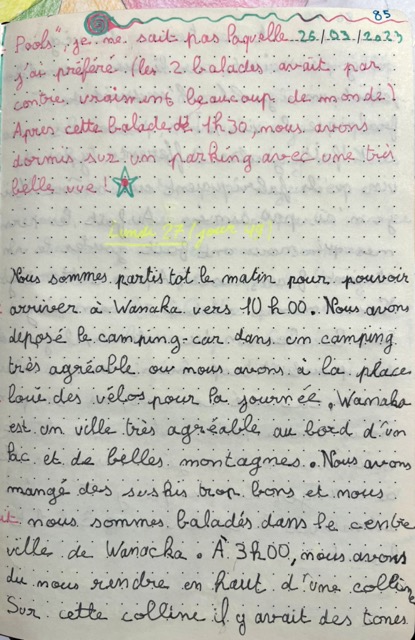 85
Pools", je me sait pas laquelle 26/03/2023
j'ai préféré (les 2 balades avait par
contre vraiment beaucoup de monde)
Apres cette balade de 1h30, nous avons
dormis sur un parking avec une très
belle vue !
Lundi 27/ jour
Nous sommes partis tot le matin pour pouvoir
arriver à Wanaka vers 10h00. Nous avons
déposé le camping-car dans un camping
très agréable ou nous avons à la place
loué des vélos pour la journée. Wanaka
est un ville très agréable au bord d'un
lac et de belles montagnes. Nous avons
mangé des sushis trop bons et nous
nous sommes baladés dans le centre
ville de Wanacka. À 3h00, nous avons
du nous rendre en haut d'une colline
Sur cette colline il y avait des tones